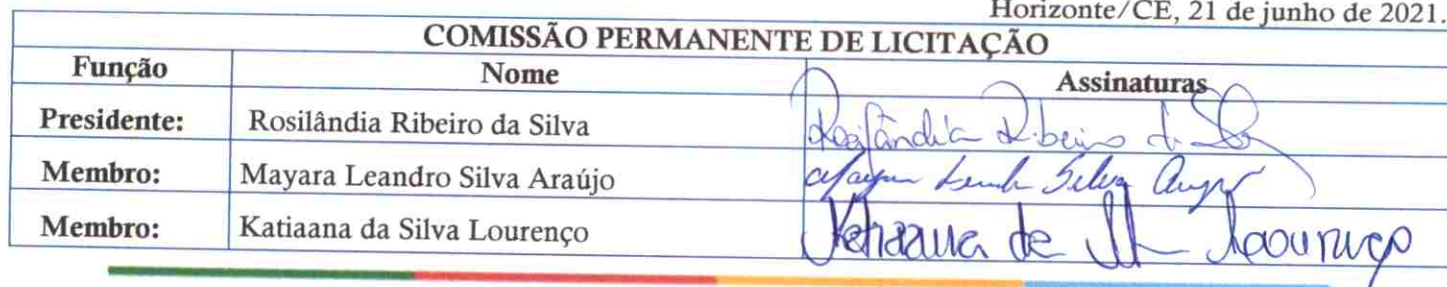 Horizonte/CE, 21 de junho de 2021.
COMISSÃO PERMANENTE DE LICITAÇÃO
Função Nome Assinaturas
Presidente: Rosilândia Ribeiro da Silva Rosilândia Ribeiro da Silva
Membro: Mayara Leandro Silva Araújo Mayara Leandro Silva Araújo
Membro: Katiaana da Silva Lourenço Katiaana da Silva Lourenço